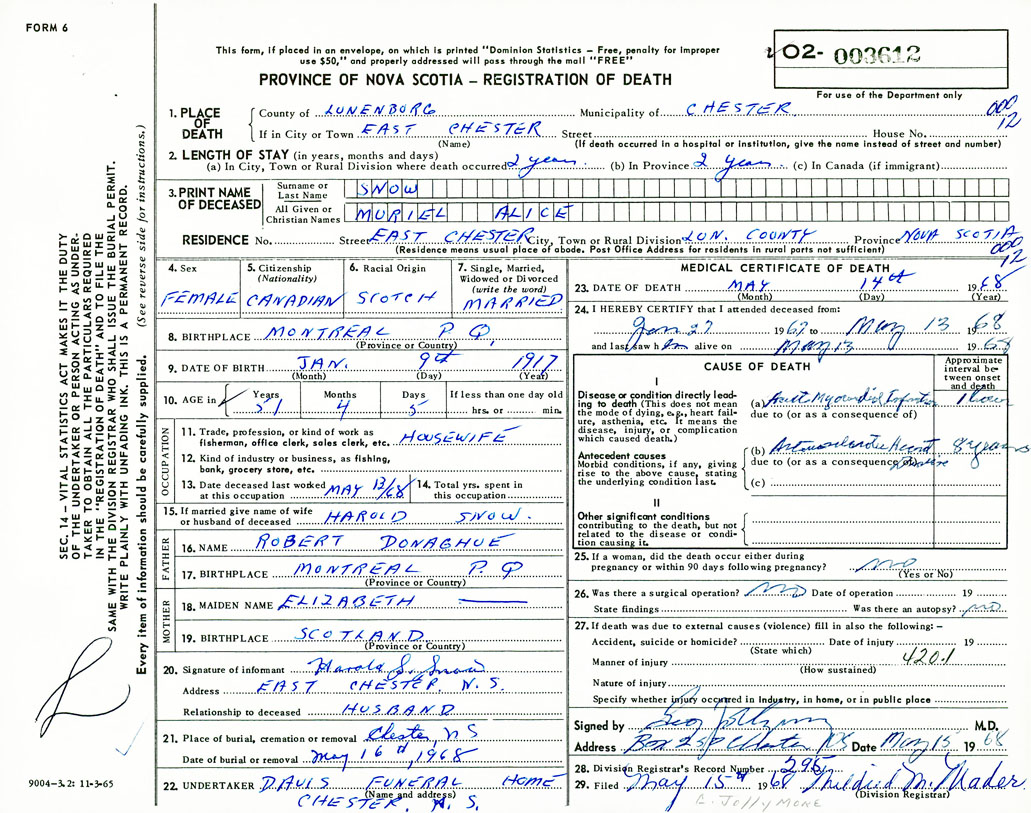 FORM 6
This form, if placed in an envelope, on which is printed "Dominion Statistics – Free, penalty for improper
use $50," and properly addressed will pass through the mail "FREE"
PROVINCE OF NOVA SCOTIA – REGISTRATION OF DEATH
02- 003612
For use of the Department only
SEC. 14 – VITAL STATISTICS ACT MAKES IT THE DUTY
OF THE UNDERTAKER OR PERSON ACTING AS UNDER-
TAKER TO OBTAIN ALL THE PARTICULARS REQUIRED
IN THE "REGISTRATION OF DEATH" AND TO FILE THE
SAME WITH THE DIVISION REGISTRAR WHO SHALL ISSUE THE BURIAL PERMIT.
WRITE PLAINLY WITH UNFADING INK. THIS IS A PERMANENT RECORD.
Every item of information should be carefully supplied. (See reverse side for instructions.)
1. PLACE OF DEATH
County of LUNENBURG Municipality of CHESTER 000 12
If in City or Town EAST CHESTER Street House No.
(Name) (If death occurred in a hospital or institution, give the name instead of street and number)
2. LENGTH OF STAY (in years, months and days)
(a) In City, Town or Rural Division where death occurred 2 years (b) In Province 2 years (c) In Canada (if immigrant)
3. PRINT NAME OF DECEASED
Surname or Last Name SNOW
All Given or Christian Names MURIEL ALICE
RESIDENCE No. Street EAST CHESTER City, Town or Rural Division LUN. COUNTY Province NOVA SCOTIA
(Residence means usual place of abode. Post Office Address for residents in rural parts not sufficient) 000 12
4. Sex FEMALE
5. Citizenship (Nationality) CANADIAN
6. Racial Origin SCOTCH
7. Single, Married, Widowed or Divorced (write the word) MARRIED
8. BIRTHPLACE MONTREAL P.Q.
(Province or Country)
9. DATE OF BIRTH JAN. 9th 1917
(Month) (Day) (Year)
10. AGE in Years 51 Months 4 Days 5 If less than one day old hrs. or min.
OCCUPATION
11. Trade, profession or kind of work as fishing,
fisherman, office clerk, sales clerk, etc. HOUSEWIFE
12. Kind of industry or business, as fishing,
bank, grocery store, etc.
13. Date deceased last worked at this occupation MAY 13/68 14. Total yrs. spent in this occupation
15. If married give name of wife or husband of deceased HAROLD SNOW.
FATHER
16. NAME ROBERT DONAGHUE
17. BIRTHPLACE MONTREAL P.Q
(Province or Country)
MOTHER
18. MAIDEN NAME ELIZABETH ———
19. BIRTHPLACE SCOTLAND
(Province or Country)
20. Signature of informant Harold S. Snow
Address EAST CHESTER, N.S.
Relationship to deceased HUSBAND
21. Place of burial, cremation or removal Chester N S
Date of burial or removal May 16th, 1968
22. UNDERTAKER DAVIS FUNERAL HOME
(Name and address)
CHESTER, N.S.
MEDICAL CERTIFICATE OF DEATH
23. DATE OF DEATH MAY 14th 1968
(Month) (Day) (Year)
24. I HEREBY CERTIFY that I attended deceased from:
Jan 27 1967 to May 13 1968
and last saw her alive on May 13 1968
CAUSE OF DEATH
Approximate interval between onset and death
I
Disease or condition directly leading to death (This does not mean the mode of dying, e.g., heart failure, asthenia, etc. It means the disease, injury, or complication which caused death.)
(a) Acute Myocardial Infarction 1 hour
due to (or as a consequence of)
Antecedent causes
Morbid conditions, if any, giving rise to the above cause, stating the underlying condition last.
(b) Arteriosclerotic Heart Disease 8 years
due to (or as a consequence of)
(c)
II
Other significant conditions contributing to the death, but not related to the disease or condition causing it.
25. If a woman, did the death occur either during
pregnancy or within 90 days following pregnancy? no
(Yes or No)
26. Was there a surgical operation? no Date of operation 19
State findings Was there an autopsy? no
27. If death was due to external causes (violence) fill in also the following: –
Accident, suicide or homicide? Date of injury 19
(State which) 420.1
Manner of injury
(How sustained)
Nature of injury
Specify whether injury occurred in Industry, in home, or in public place
Signed by M.D.
Address Box 250 Chester NS Date May 15 1968
28. Division Registrar's Record Number 295
29. Filed May 15th 1968 Mildred M. Mader
(Division Registrar)
9004–3.2: 11-3-65